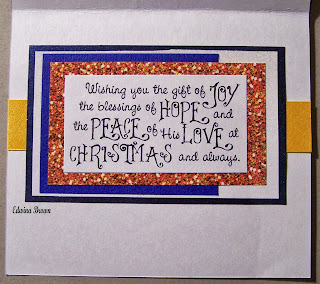 Wishing you the gift of JOY
the blessings of HOPE and
the PEACE of His LOVE at
CHRISTMAS and always.
Edwina Brown